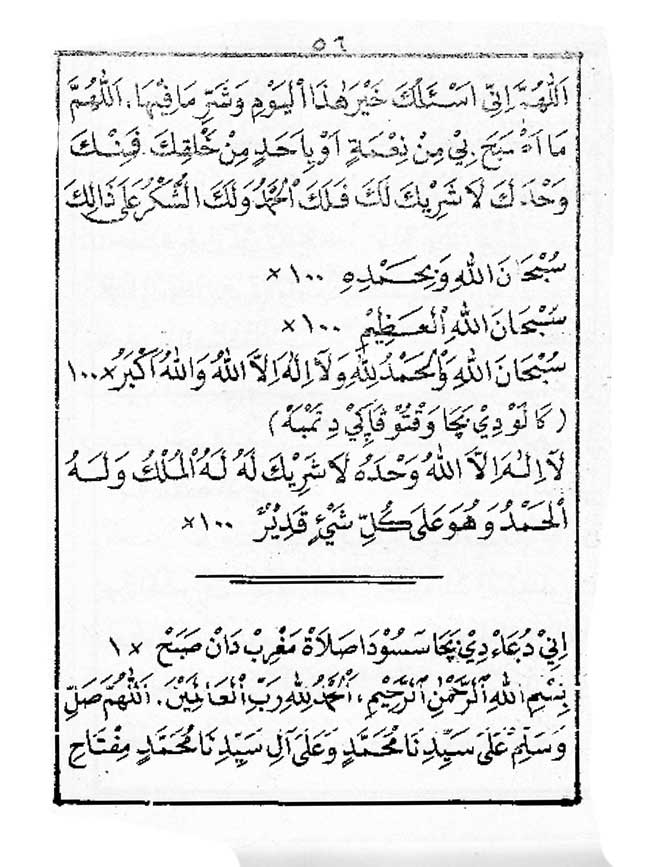 ٥٦
اَللّٰهُمَّ اِنِّى اَسْئَلُكَ خَيْرَ هٰذَا الْيَوْمِ وَشَرِّ مَا فِيْهَا، اَللّٰهُمَّ
مَا اَصْبَحَ بِيْ مِنْ نِعْمَةٍ اَوْ بِاَحَدٍ مِنْ خَلْقِكَ فَمِنْكَ
وَحْدَكَ لَا شَرِيْكَ لَكَ فَلَكَ الْحَمْدُ وَلَكَ الشُّكْرُ عَلَى ذَالِكَ
سُبْحَانَ اللّٰهِ وَبِحَمْدِهِ ١٠٠×
سُبْحَانَ اللّٰهِ الْعَظِيْمِ ١٠٠×
سُبْحَانَ اللّٰهِ وَالْحَمْدُ لِلّٰهِ وَلَا اِلٰهَ اِلَّا اللّٰهُ وَاللّٰهُ اَكْبَرُ ×١٠٠
(كَالَوْ دِيْ بَچَا وَقْتُوْ فَاݢِيْ دِتَمْبَهْ)
لَا اِلٰهَ اِلَّا اللّٰهُ وَحْدَهُ لَا شَرِيْكَ لَهُ لَهُ الْمُلْكُ وَلَهُ
الْحَمْدُ وَهُوَ عَلَى كُلِّ شَيْءٍ قَدِيْرٌ ١٠٠×
اِنِيْ دُعَاءْ دِيْ بَچَا سَسُوْدَا صَلَاةْ مَغْرِبْ دَانْ صَبَحْ ×١
بِسْمِ اللّٰهِ الرَّحْمٰنِ الرَّحِيْمِ، اَلْحَمْدُ لِلّٰهِ رَبِّ الْعَالَمِيْنَ. اَللّٰهُمَّ صَلِّ
وَسَلِّمْ عَلَى سَيِّدِنَا مُحَمَّدٍ وَعَلَى آلِ سَيِّدِنَا مُحَمَّدٍ مِفْتَاحِ